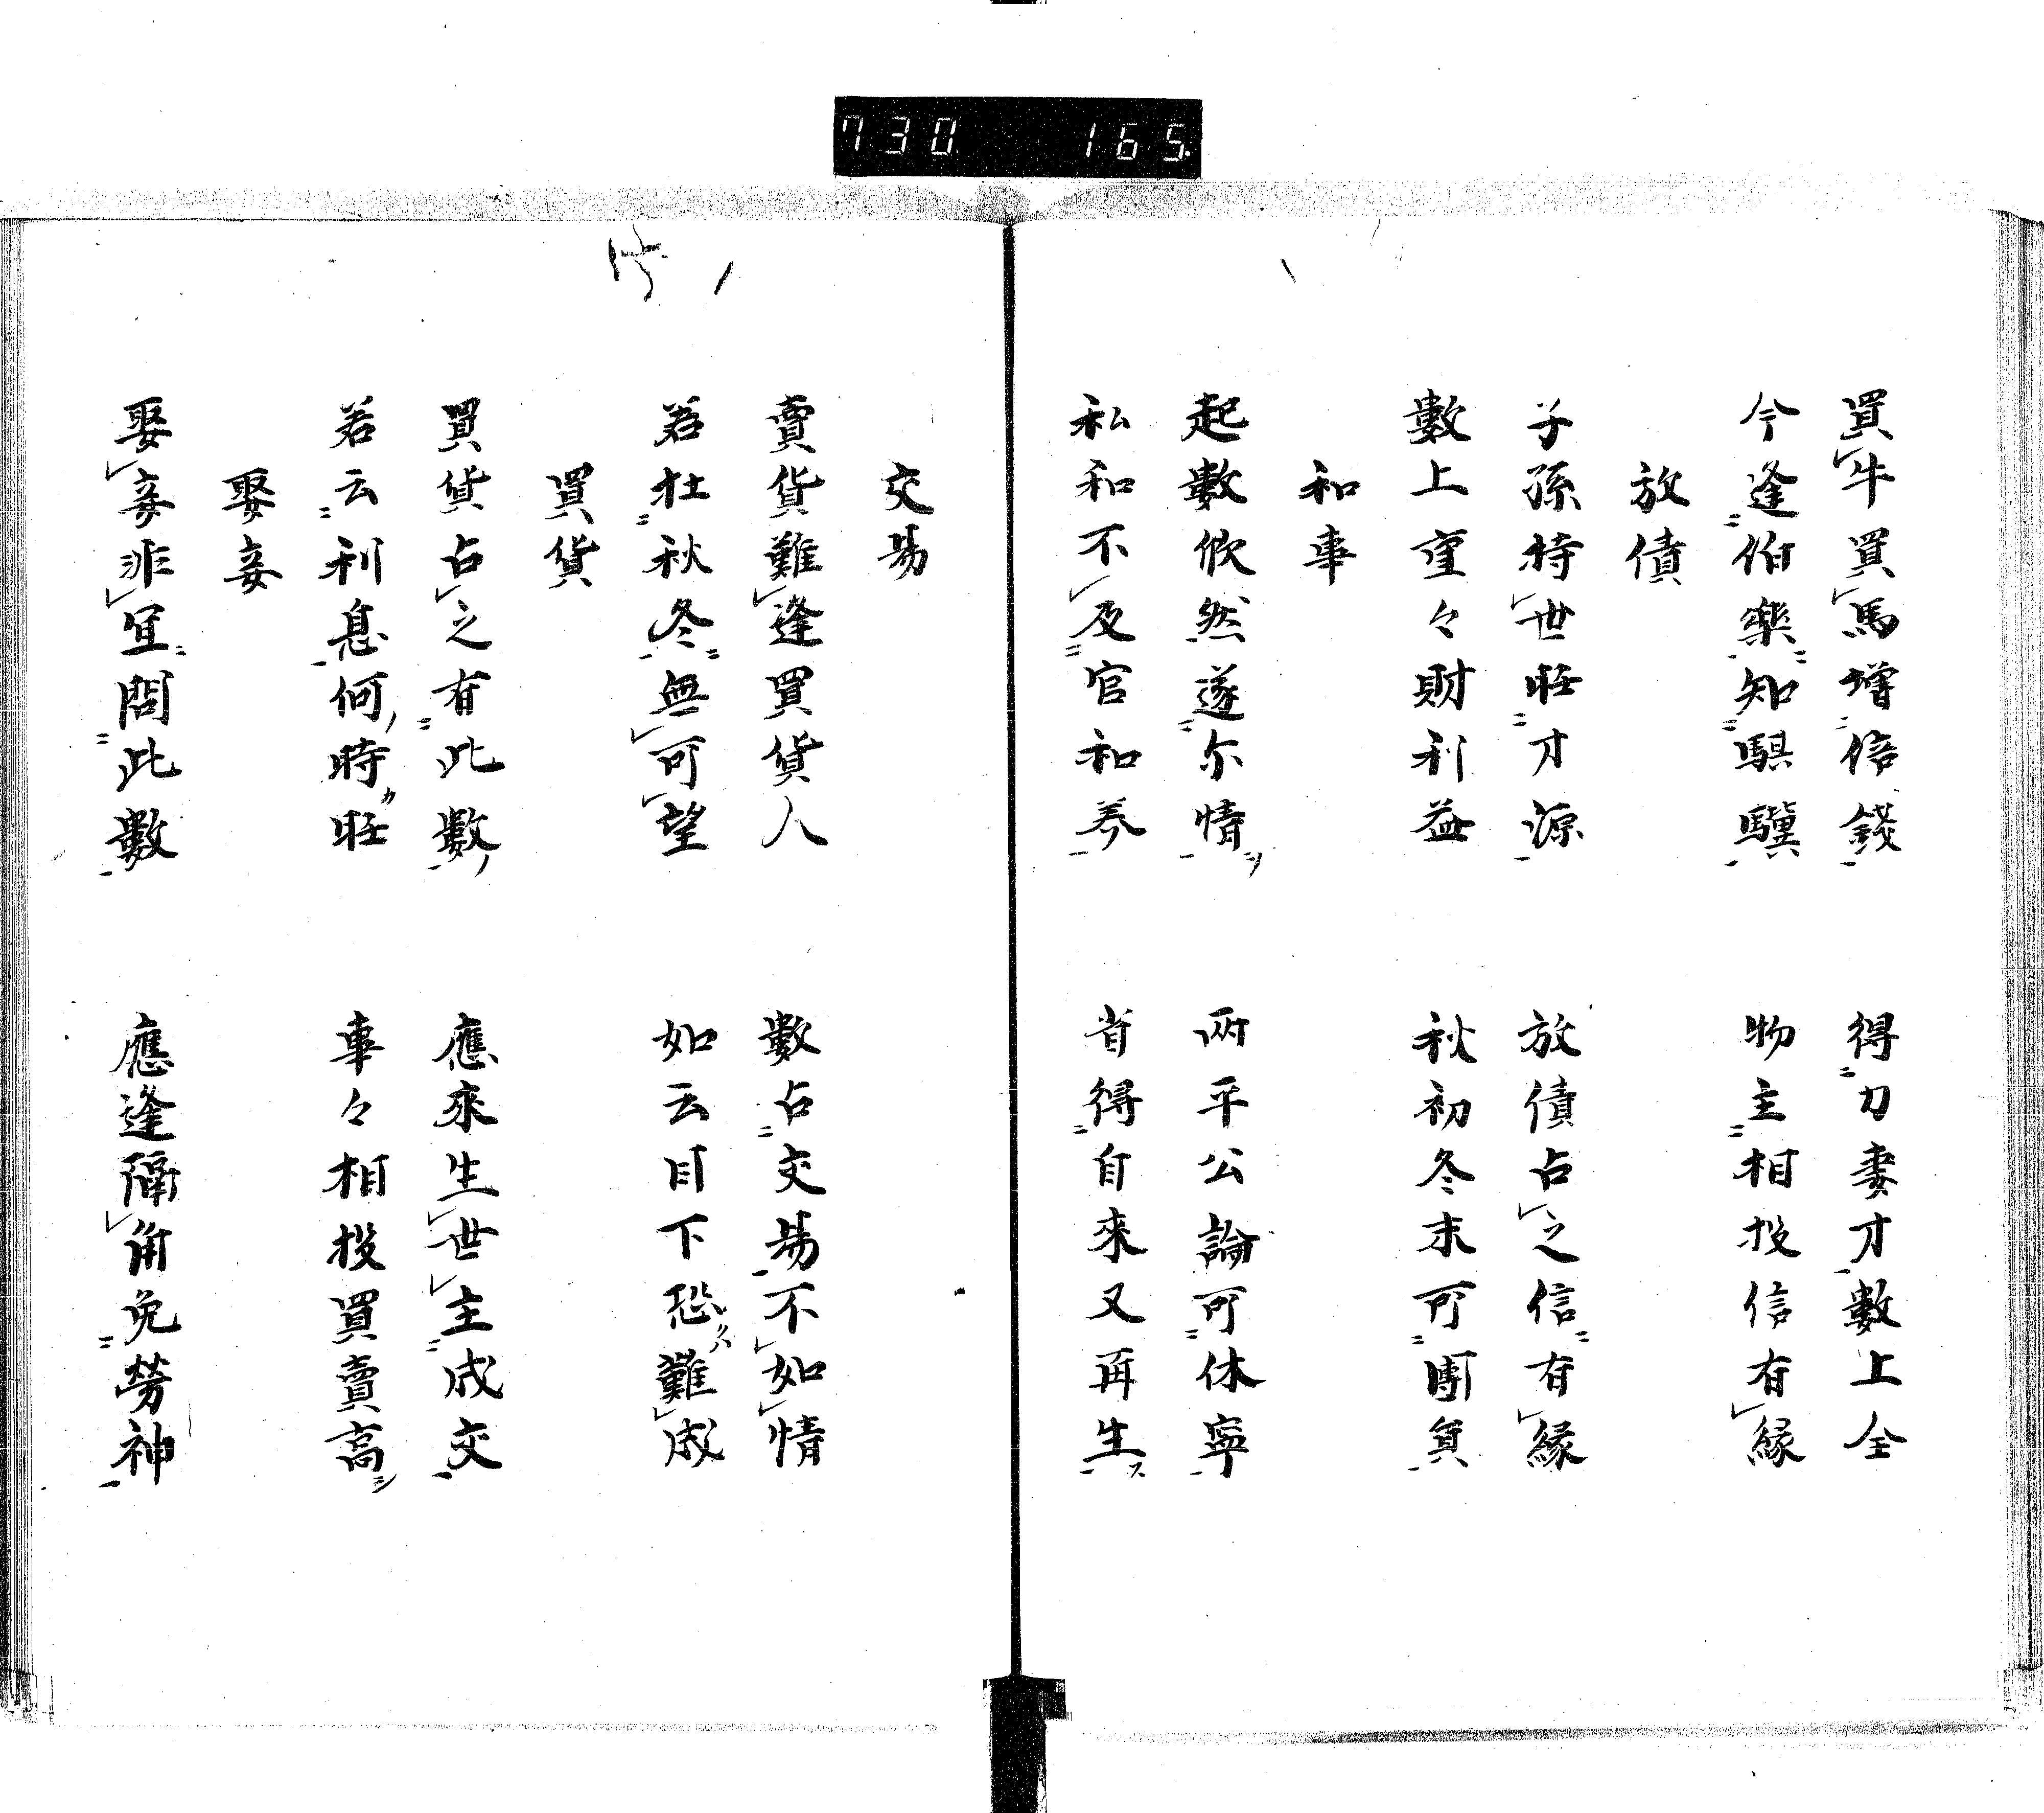 730 165
買牛買馬増倍錢 得力妻才數上全
今逢伯樂知騏驥 物主相投信有縁
放債
子孫持世旺才源 放債占之信有縁
數上重々財利益 秋初冬末可團負
和事
起數攸然遂尓情 两平公論可休寧
私和不及官和养 省得自來又再生
交易
賣貨難逢買貨人 數占交易不如情
若杜秋冬無可望 如云目下恐難成
買貨
買貨占之有此數 應來生世主成交
若云利息何時旺 事々相投買賣高
娶妾
娶妾非宜問此數 應逢隔角免勞神